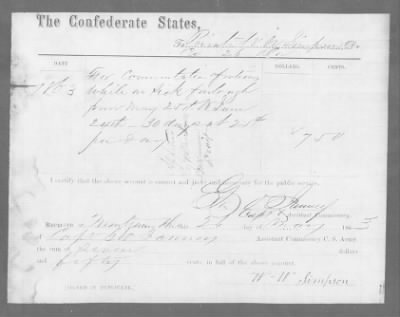 The Confederate States,
To Private W. W. Simpson Dr.
DATE DOLLARS. CENTS.
1863 For Commutation of rations
while on sick furlough
from May 25th to June
24th - 30 days at 25cts
per day $7 50
I certify that the above account is correct and just, and necessary for the public service.
Capt & Assistant Commissary.
RECEIVED at Montgomery this 25 day of May 1863
of Capt Assistant Commissary C. S. Army
the sum of seven dollars
and fifty cents, in full of the above account.
W. W. Simpson
[SIGNED IN DUPLICATE.]